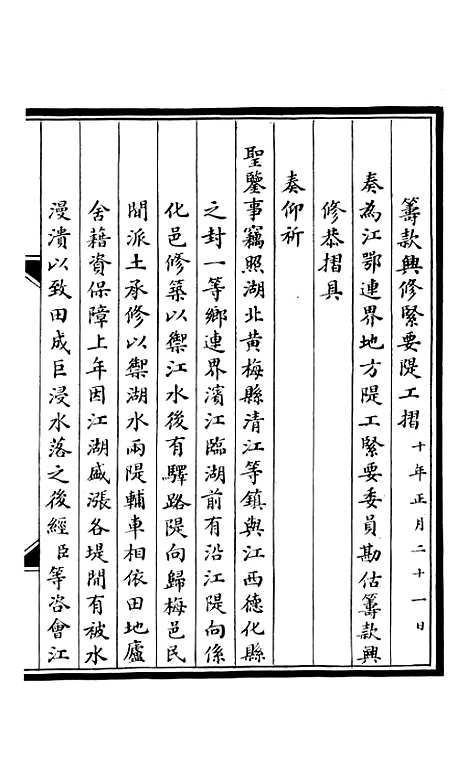 籌款興修緊要隄工摺十年正月二十一日
奏為江鄂連界地方隄工緊要委員勘估籌款興
修恭摺具
奏仰祈
聖鑒事竊照湖北黃梅縣清江等鎮與江西德化縣
之封一等鄉連界濱江臨湖前有沿江隄向係
化邑修築以禦江水後有驛路隄向歸梅邑民
間派土承修以禦湖水兩隄輔車相依田地廬
舍藉資保障上年因江湖盛漲各堤間有被水
漫潰以致田成巨浸水落之後經臣等咨會江